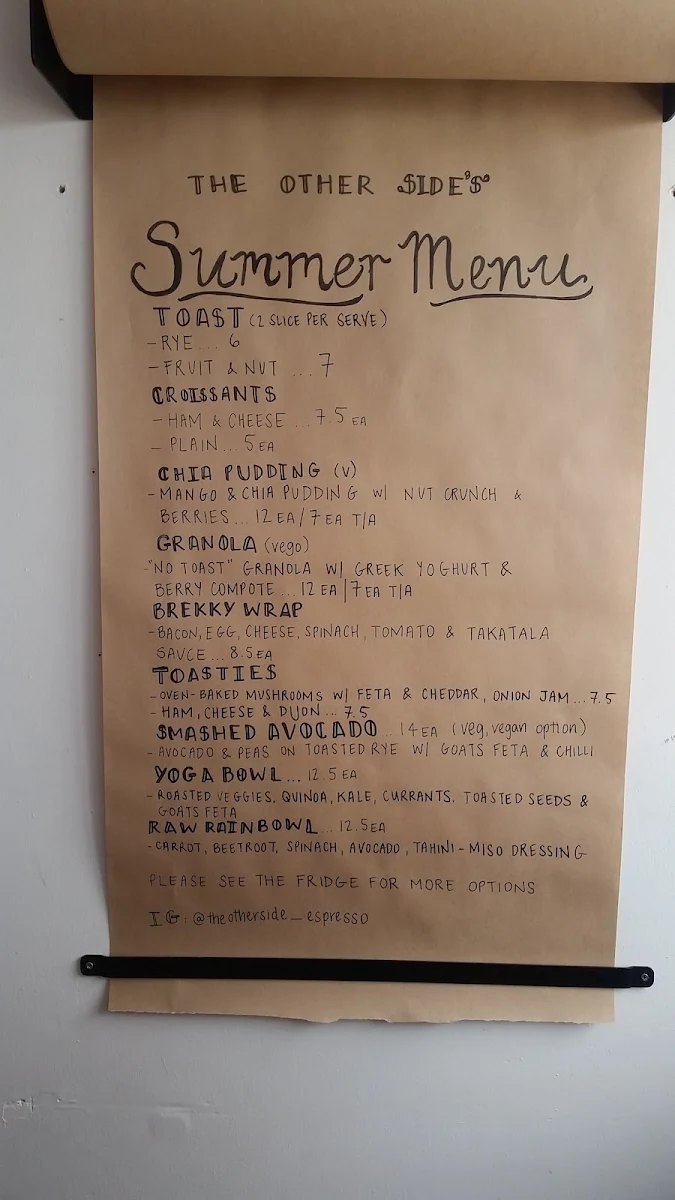 THE OTHER SIDE'S
Summer Menu
TOAST (2 SLICE PER SERVE)
- RYE ... 6
- FRUIT & NUT ... 7
CROISSANTS
- HAM & CHEESE ... 7.5 EA
- PLAIN ... 5 EA
CHIA PUDDING (V)
- MANGO & CHIA PUDDING W/ NUT CRUNCH &
BERRIES ... 12 EA / 7 EA T/A
GRANOLA (vego)
- "NO TOAST" GRANOLA W/ GREEK YOGHURT &
BERRY COMPOTE ... 12 EA | 7 EA T/A
BREKKY WRAP
- BACON, EGG, CHEESE, SPINACH, TOMATO & TAKATALA
SAUCE ... 8.5 EA
TOASTIES
- OVEN-BAKED MUSHROOMS W/ FETA & CHEDDAR, ONION JAM ... 7.5
- HAM, CHEESE & DIJON ... 7.5
SMASHED AVOCADO ... 14 EA (veg, vegan option)
- AVOCADO & PEAS ON TOASTED RYE W/ GOATS FETA & CHILLI
YOGA BOWL ... 12.5 EA
- ROASTED VEGGIES, QUINOA, KALE, CURRANTS, TOASTED SEEDS &
GOATS FETA
RAW RAINBOWL ... 12.5 EA
- CARROT, BEETROOT, SPINACH, AVOCADO, TAHINI-MISO DRESSING
PLEASE SEE THE FRIDGE FOR MORE OPTIONS
IG: @theotherside_espresso